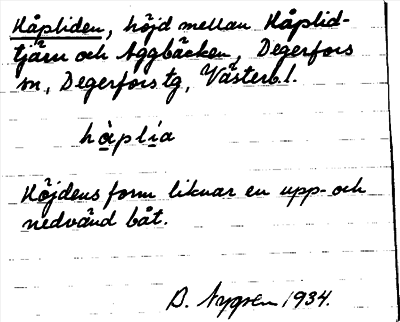 Håpliden, höjd mellan Håplid-
tjärn och Aggbäcken, Degerfors
sn, Degerfors tg, Västerb.l.
håplía
Höjdens form liknar en upp- och
nedvänd båt.
B. Nygren 1934.